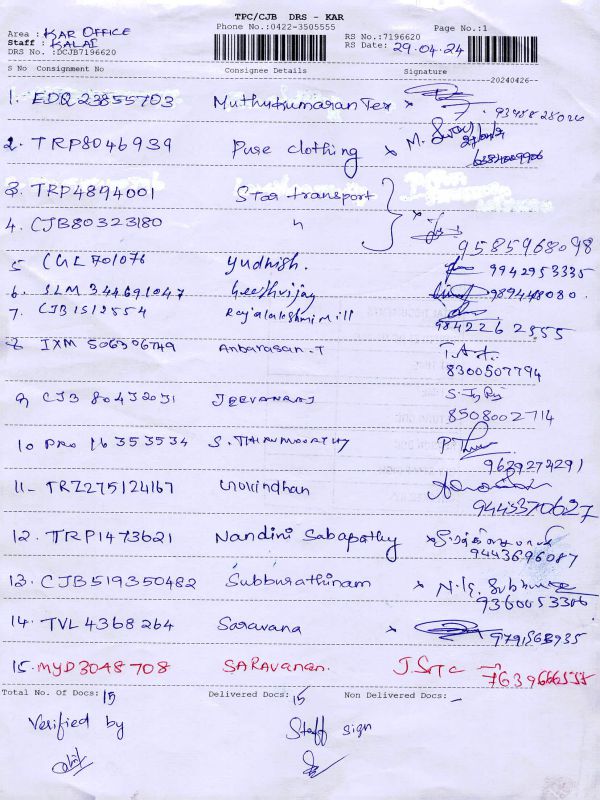 TPC/CJB DRS - KAR
Area : KAR OFFICE Phone No.:0422-3505555 Page No.:1
Staff : KALAI RS No.:7196620
DRS No. :DCJB7196620 RS Date: 29.04.24
S No Consignment No Consignee Details Signature
20240426
1. EDQ23855703 Muthukumaran Tex x
2. TRP8046939 Pure clothing x M.
3. TRP4894001 Star transport
4. CJB80323180 " x 9585968098
5 CGL701076 Yudhish. 9942953335
6. SLM 344691047 Geethvijay
7. CJB1512554 Rajalakshmi Mill 9842262555
8 IXM 506306749 Anbarasan.T T.A. 8300507794
9 CJB 80432031 JEEVANRAJ 8508002714
10 PRO 16353534 S. THIRUMOORTHY 9629272291
11- TRZ275124167 Govindhan 9443370627
12. TRP1473621 Nandini Sabapathy x 9443696087
13. CJB519350482 Subburathinam x N.G. Subbu 9360053306
14. TVL4368264 Saravana x
15. MYD3048708 SARAVANAN. 7639666555
Total No. Of Docs: 15 Delivered Docs: 15 Non Delivered Docs: -
Verified by Staff sign